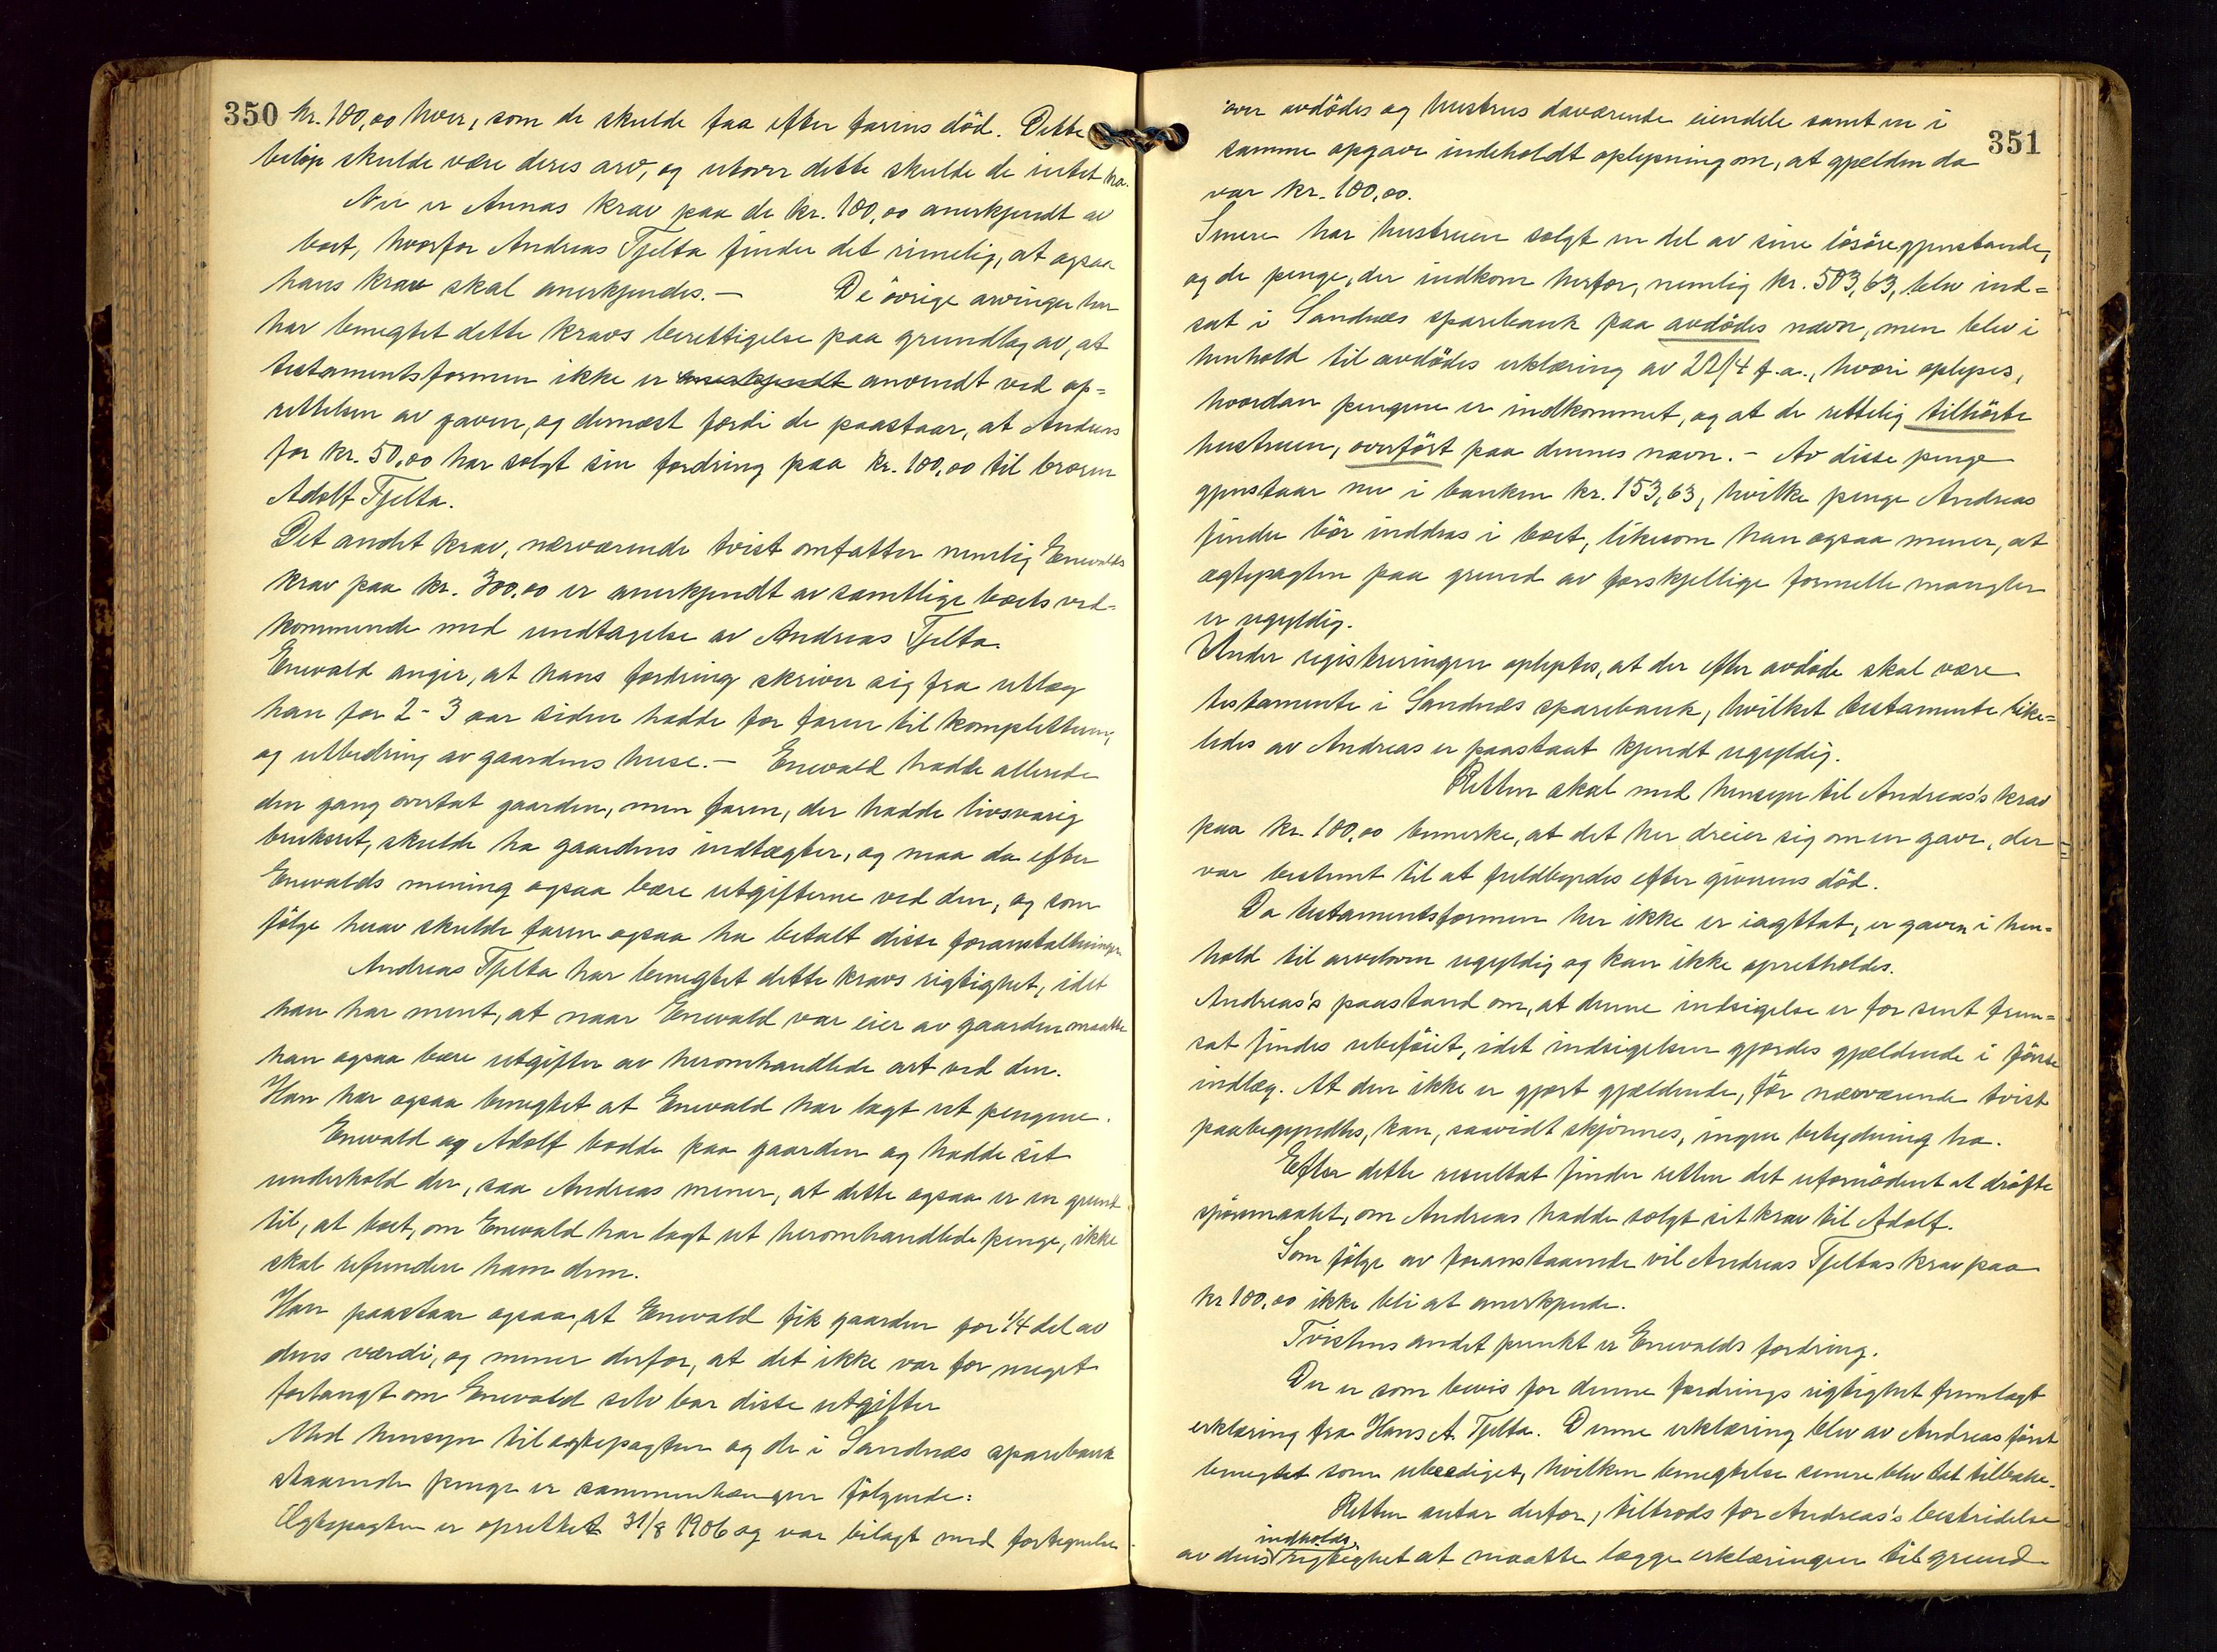 350
kr. 100,00 hver, som de skulde faa efter farens död. Dette
belöp skulde være deres arv, og utover dette skulde de intet ha.
Nu er Annas krav paa de kr. 100,00 anerkjendt av
boet, hvorfor Andreas Tjelta finder det rimelig, at ogsaa
hans krav skal anerkjendes. — De övrige arvinger har
har benegtet dette kravs berettigelse paa grundlag av, at
testamentsformen ikke er anerkjendt anvendt ved op=
rettelsen av gaven, og dernæst fordi de paastaar, at Andreas
for kr. 50,00 har solgt sin fordring paa kr. 100,00 til broren
Adolf Tjelta.
Det andet krav, nærværende tvist omfatter nemlig Enevalds
krav paa kr. 300,00 er anerkjendt av samtlige boets ved-
kommende med undtagelse av Andreas Tjelta.
Enevald angir, at hans fordring skriver sig fra utlæg
han for 2-3 aar siden hadde for faren til komplettering
og utbedring av gaardens huse. — Enevald hadde allerede
den gang overtat gaarden, men faren, der hadde livsvarig
bruksret, skulde ha gaardens indtægter, og maa da efter
Enevalds mening ogsaa bære utgifterne ved den, og som
fölge herav skulde faren ogsaa ha betalt disse foranstaltninger
Andreas Tjelta har benegtet dette kravs rigtighet, idet
han har ment, at naar Enevald var eier av gaarden maatte
han ogsaa bære utgifter av heromhandlede art ved den.
Han har ogsaa benegtet at Enevald har lagt ut pengene.
Enevald og Adolf bodde paa gaarden og hadde sit
underhold der, saa Andreas mener, at dette ogsaa er en grund
til, at boet, om Enevald har lagt ut heromhandlede penge, ikke
skal refundere ham dem.
Han paastaar ogsaa, at Enevald fik gaarden for 1/4 del av
dens værdi, og mener derfor, at det ikke var for meget
forlangt om Enevald selv bar disse utgifter
Med hensyn til ægtepagten og de i Sandnæs sparebank
staaende penge er sammenhængen fölgende:
Ægtepagten er oprettet 31/8 1906 og var bilagt med fortegnelse
351
over avdödes og hustrus daværende eiendele samt en i
samme opgave indeholdt oplysning om, at gjælden da
var kr. 100,00.
Senere har hustruen solgt en del av sine lösöregjenstande,
og de penge, der indkom herfor, nemlig kr. 503,63, blev ind=
sat i Sandnæs sparebank paa avdödes navn, men blev i
henhold til avdödes erklæring av 22/4 f.a., hvori oplyses,
hvordan pengene er indkommet, og at de rettelig tilhörte
hustruen, overfört paa dennes navn. — Av disse penge
gjenstaar nu i banken kr. 153,63, hvilke penge Andreas
finder bör inddras i boet, likesom han ogsaa mener, at
ægtepagten paa grund av forskjellige formelle mangler
er ugyldig.
Under registreringen oplystes, at der efter avdöde skal være
testamente i Sandnæs sparebank, hvilket testamente like=
ledes av Andreas er paastaat kjendt ugyldig.
Retten skal med hensyn til Andreas's krav
paa kr. 100,00 bemerke, at det her dreier sig om en gave, der
var bestemt til at fuldbyrdes efter giverens död.
Da testamentsformen her ikke er iagttat, er gaven i hen=
hold til arveloven ugyldig og kan ikke opretholdes.
Andreas's paastand om, at denne indsigelse er for sent frem=
sat findes ubeföiet, idet indsigelsen gjordes gjældende i förste
indlæg. At den ikke er gjort gjældende, för nærværende tvist
paabegyndtes, kan, saavidt skjönnes, ingen betydning ha.
Efter dette resultat finder retten det ufornödent at dröfte
spörsmaalet, om Andreas hadde solgt sit krav til Adolf.
Som fölge av foranstaaende vil Andreas Tjeltas krav paa
kr 100,00 ikke bli at anerkjende.
Tvistens andet punkt er Enevalds fordring.
Der er som bevis for denne fordrings rigtighet fremlagt
erklæring fra Hans A. Tjelta. Denne erklæring blev av Andreas först
benegtet som ubeediget, hvilken benegtelse senere blev tat tilbake.
Retten antar derfor, tiltrods for Andreas's bestridelse
indholds,
av dens rigtighet at maatte lægge erklæringen til grund